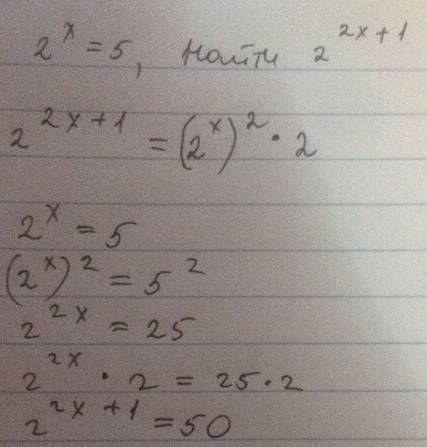 2^x = 5, Найти 2^{2x+1}
2^{2x+1} = (2^x)^2 · 2
2^x = 5
(2^x)^2 = 5^2
2^{2x} = 25
2^{2x} · 2 = 25 · 2
2^{2x+1} = 50